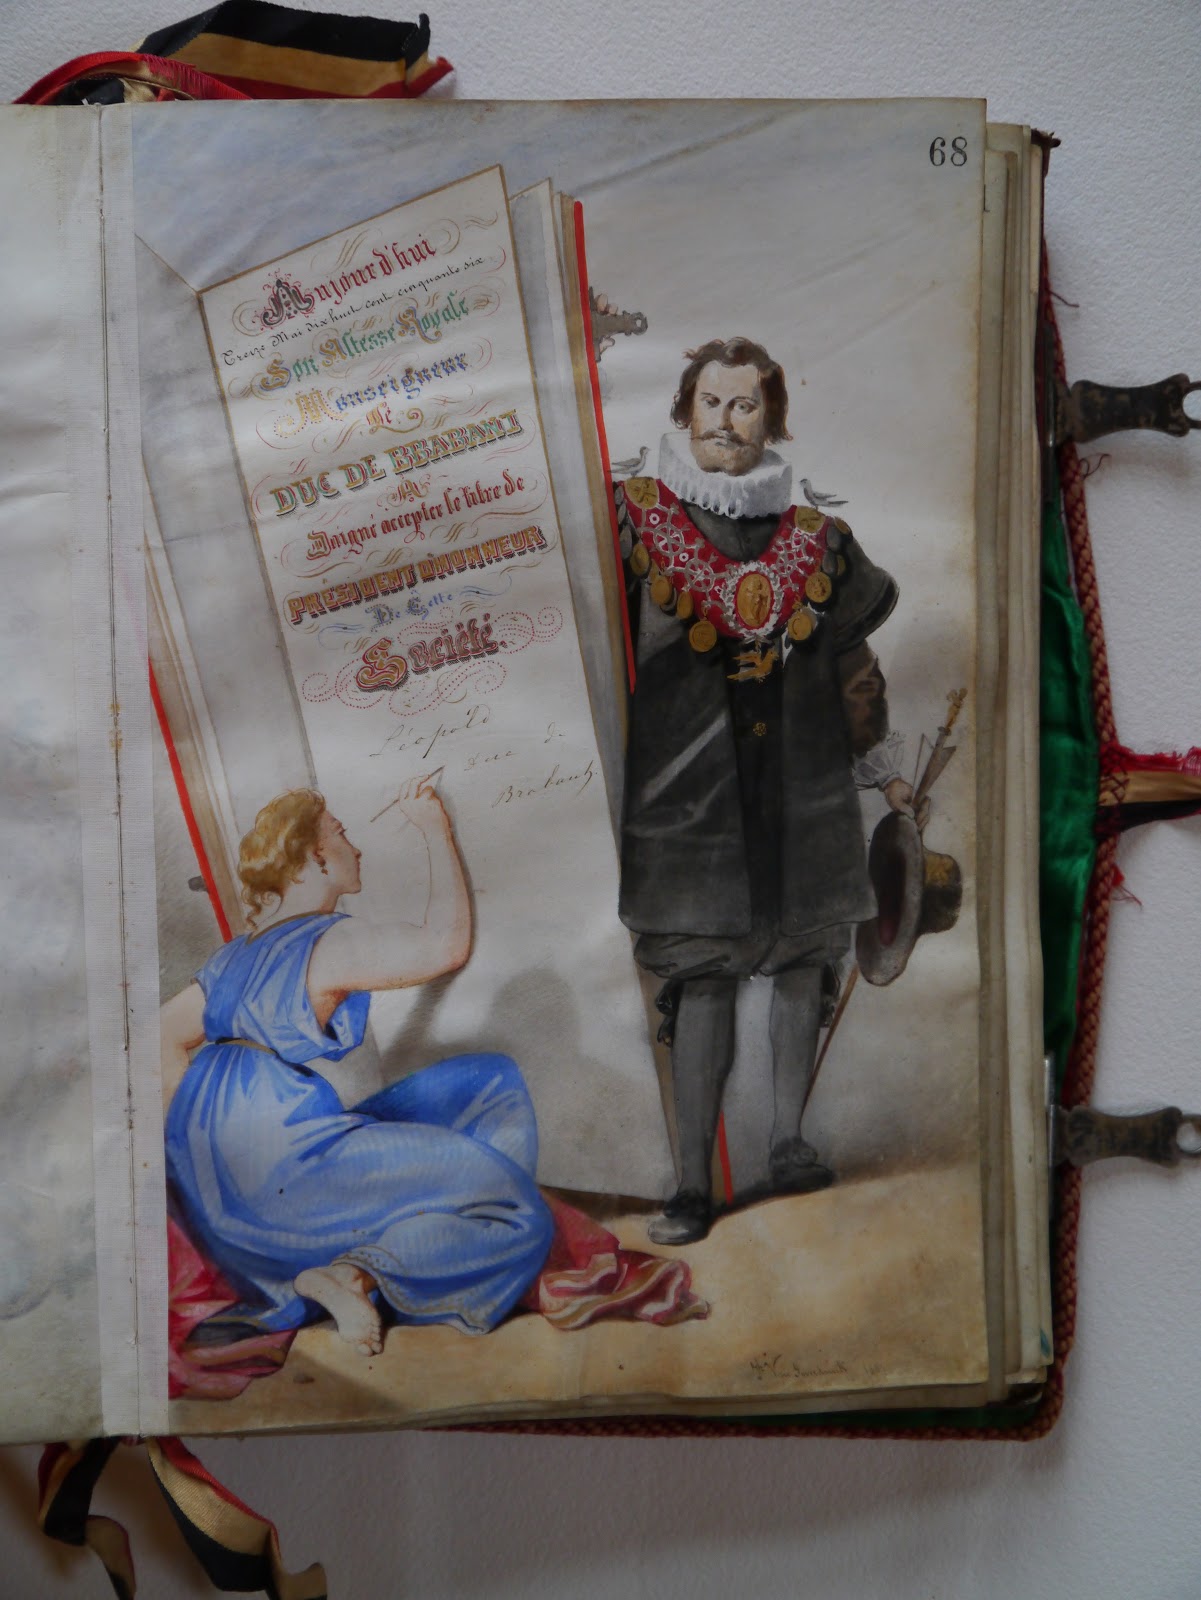 68
Aujourd'hui
Treize Mai dix huit cent cinquante six
Son Altesse Royale
Monseigneur
Le
DUC DE BRABANT
A
Daigné accepter le titre de
PRÉSIDENT D'HONNEUR
De Cette
Société.
Léopold
Duc de
Brabant.
Van